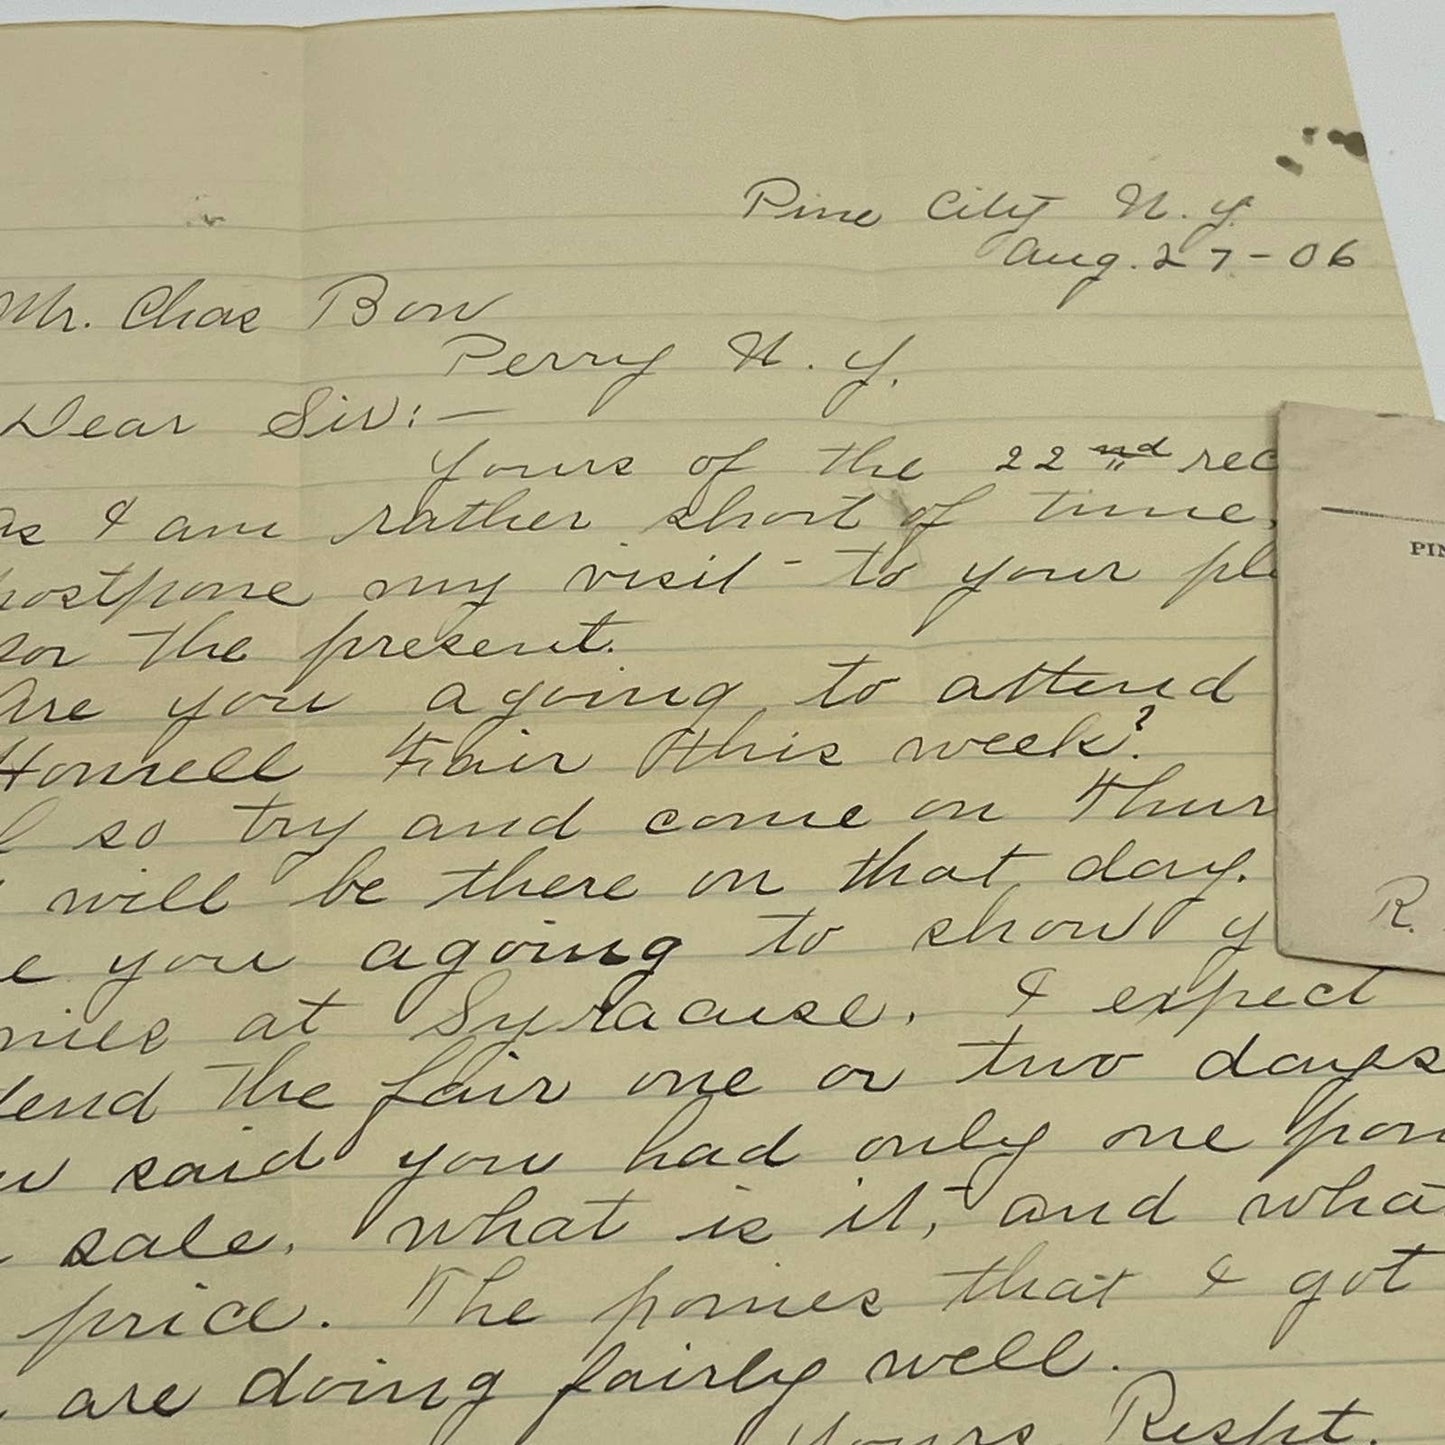 Pine City N.Y.
Aug. 27-06
Mr. Chas Bow
Perry N.Y.
Dear Sir:—
Yours of the 22nd rec
as I am rather short of time,
postpone my visit to your pla
for the present.
Are you agoing to attend
Hornell Fair this week?
If so try and come on Thur
I will be there on that day.
e you agoing to show y
nies at Syracuse. I expect
tend the fair one or two days
u said you had only one pon
sale. What is it, and wha
price. The ponies that I got
are doing fairly well.
Yours Respt.
PIN
R.